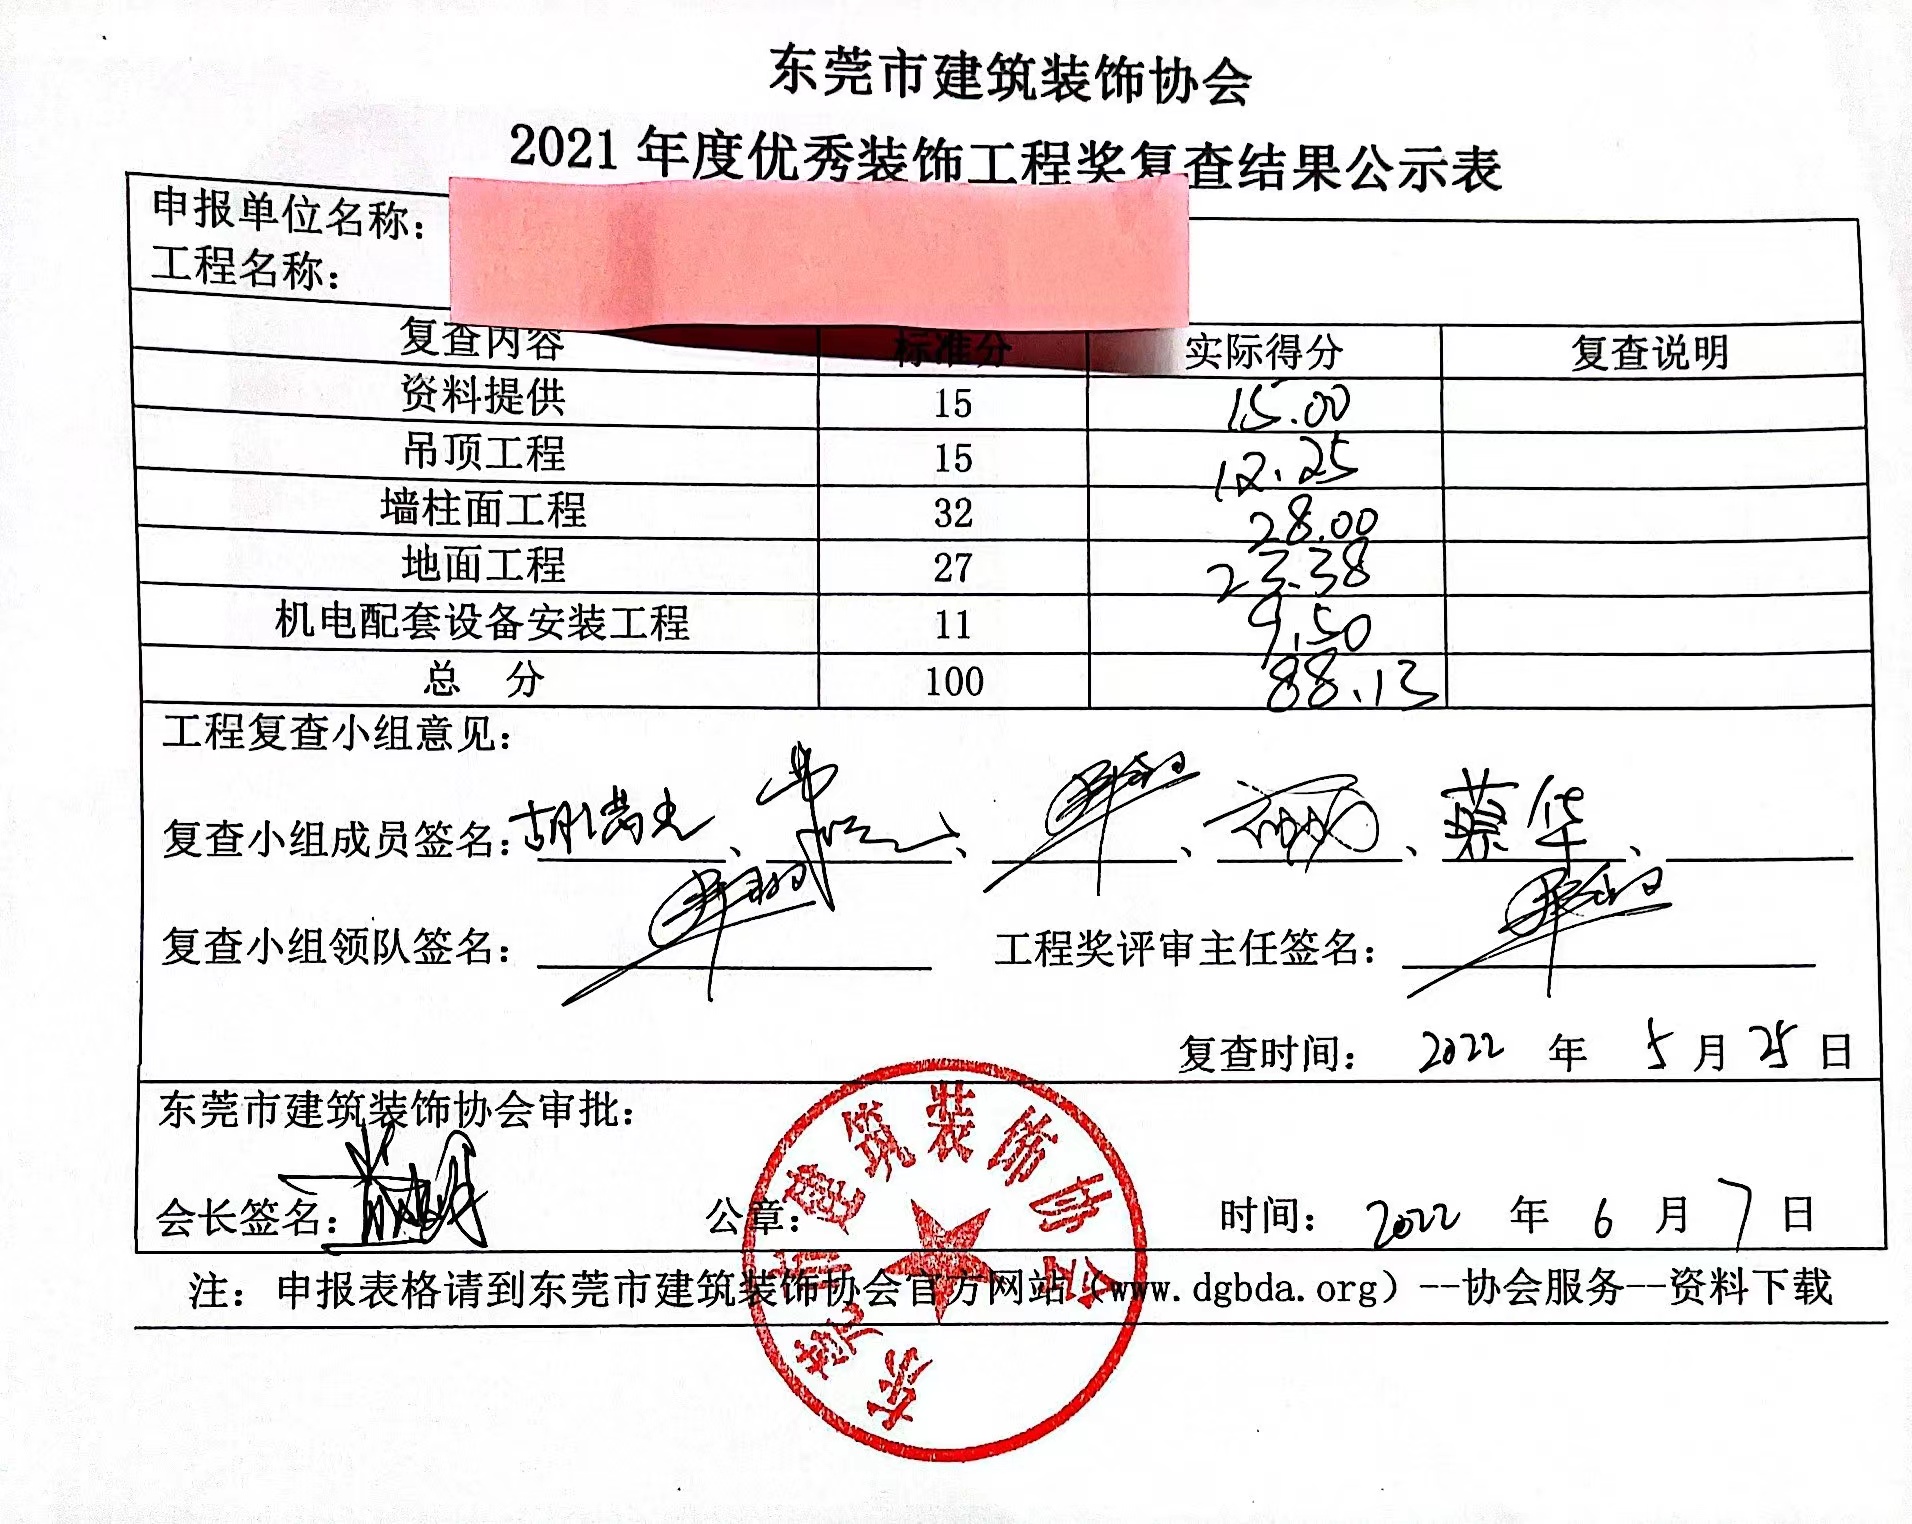 东莞市建筑装饰协会
2021 年度优秀装饰工程奖复查结果公示表
申报单位名称：
工程名称：
复查内容 标准分 实际得分 复查说明
资料提供 15 15.00
吊顶工程 15 12.25
墙柱面工程 32 28.00
地面工程 27 23.38
机电配套设备安装工程 11 9.50
总 分 100 88.13
工程复查小组意见：
复查小组成员签名：、、、、蔡华、
复查小组领队签名： 工程奖评审主任签名：
复查时间： 2022 年 5 月 25 日
东莞市建筑装饰协会审批：
会长签名： 公章： 时间： 2022 年 6 月 7 日
东莞市建筑装饰协会
注：申报表格请到东莞市建筑装饰协会官方网站（www.dgbda.org）--协会服务--资料下载